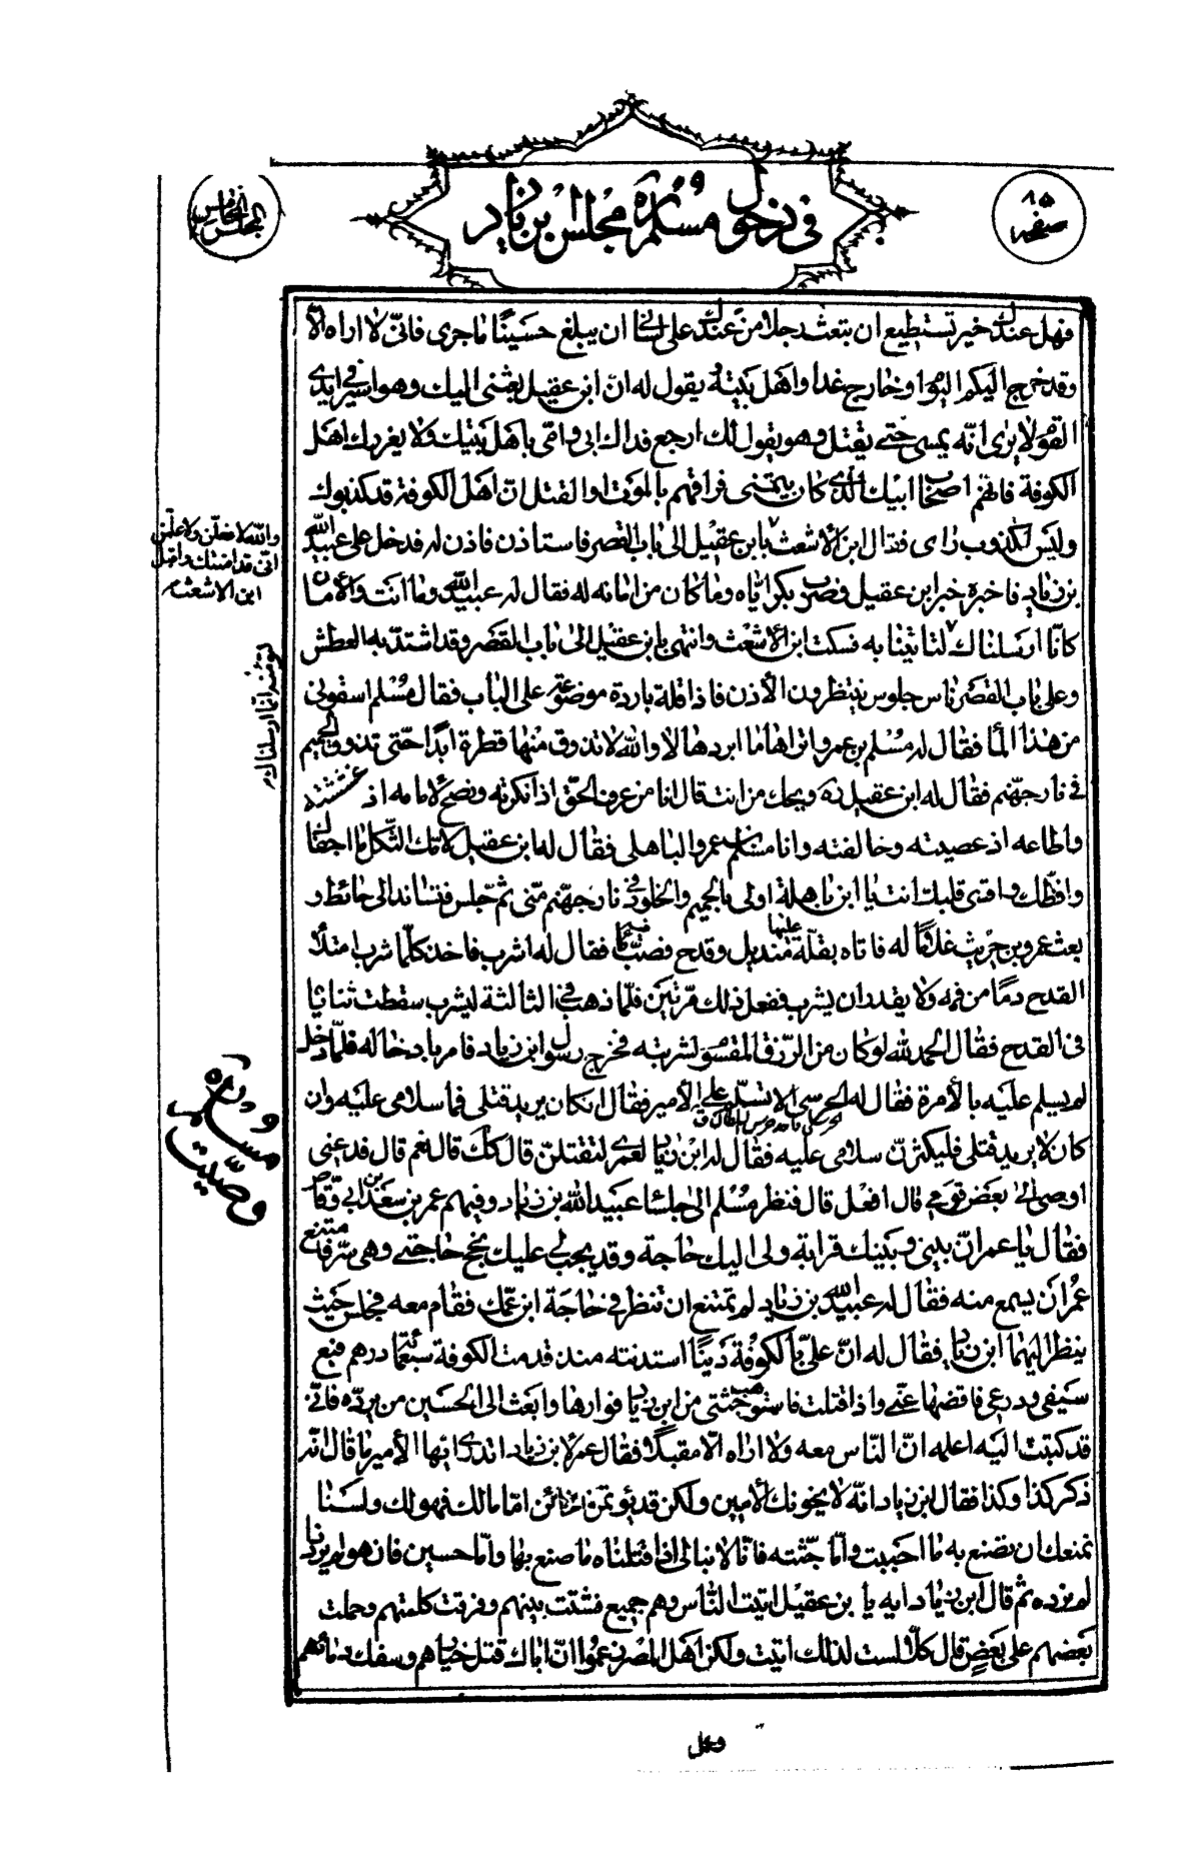 صفحه ٨٥
في دخول مسلم ره مجلس بن زياد
المجلس الخامس
فهل عندك خير تستطيع ان تبعث رجلا من عندك على لساني ان يبلغ حسينا ما جرى فاني لا اراه الا
وقد خرج اليكم اليوم او خارج غدا واهل بيته ويقول له ان ابن عقيل بعثني اليك وهو اسير في ايدي
القوم لا يرى انه يمسي حتى يقتل وهو يقول لك ارجع فداك ابي وامي باهل بيتك ولا يغررك اهل
الكوفة فانهم اصحاب ابيك الذي كان يتمنى فراقهم بالموت او القتل ان اهل الكوفة قد كذبوك
وليس لكذوب راى فقال ابن الاشعث يابن عقيل الى باب القصر فاستاذن فاذن له فدخل على عبيد الله
بن زياد فاخبره خبر ابن عقيل وضرب بكر اياه وما كان من امانه له فقال له عبيد الله وما انت والامان
كانا ارسلناك لتاتينا به فسكت ابن الاشعث وانتهى بابن عقيل الى باب القصر وقد اشتد به العطش
وعلى باب القصر ناس جلوس ينتظرون الأذن فاذا قلة باردة موضوعة على الباب فقال مسلم اسقوني
من هذا الماء فقال له مسلم بن عمرو اتراها ما ابردها لا والله لا تذوق منها قطرة ابدا حتى تذوق الحميم
في نار جهنم فقال له ابن عقيل ره ويحك من انت قال انا من عرف الحق اذ انكرته ونصح لامامه اذ غششته
واطاعه اذ عصيته وخالفته وانا مسلم بن عمرو الباهلي فقال له ابن عقيل لامك الثكل ما اجفاك
وافظك واقسى قلبك انت يا ابن باهلة اولى بالحميم والخلود في نار جهنم مني ثم جلس فتساند الى حائط و
بعث عمرو بن حريث غلاما له فاتاه بقلة عليها منديل وقدح فصب فيه ماء فقال له اشرب فاخذ كلما شرب امتلأ
القدح دما من فمه ولا يقدر ان يشرب ففعل ذلك مرتين فلما ذهب في الثالثة ليشرب سقطت ثناياه
في القدح فقال الحمد لله لو كان من الرزق المقسوم لشربته فخرج رسول ابن زياد فامر بادخاله فلما دخل
لم يسلم عليه بالأمرة فقال له الحرسي الا تسلم على الأمير فقال ان كان يريد قتلي فما سلامي عليه وان
كان لا يريد قتلي فليكثرن سلامي عليه فقال له ابن زياد لعمري لتقتلن قال كك قال نعم قال فدعني
اوصي الى بعض قومي قال افعل قال فنظر مسلم الى جلساء عبيد الله بن زياد وفيهم عمر بن سعد بن ابي وقاص
فقال يا عمر ان بيني وبينك قرابة ولي اليك حاجة وقد يجب لي عليك نجح حاجتي وهي سر فامتنع
عمر ان يسمع منه فقال له عبيد الله بن زياد لم تمتنع ان تنظر في حاجة ابن عمك فقام معه فجلس حيث
ينظر اليهما ابن زياد فقال له ان علي بالكوفة دينا استدنته منذ قدمت الكوفة سبعمائة درهم فبع
سيفي ودرعي فاقضها عني واذا قتلت فاستوهب جثتي من ابن زياد فوارها وابعث الى الحسين من يرده فاني
قد كتبت اليه اعلمه ان الناس معه ولا اراه الا مقبلا فقال عمر لابن زياد اتدري ايها الأمير ما قال انه
ذكر كذا وكذا فقال ابن زياد انه لا يخونك الأمين ولكن قد يؤتمن الخائن اما مالك فهو لك ولسنا
نمنعك ان تصنع به ما احببت واما جثته فانا لا نبالي اذا قتلناه ما صنع بها واما حسين فان هو لم يردنا
لم نرده ثم قال ابن زياد ايه يا بن عقيل اتيت الناس وهم جميع فشتت بينهم وفرقت كلمتهم وحملت
بعضهم على بعض قال كلا لست لذلك اتيت ولكن اهل المصر زعموا ان اباك قتل خيارهم وسفك دمائهم
والله لافعلن ولاعلمن
اني قد امنتك واقبل
ابن الاشعث م
لتؤمنه انما ارسلناك م
وصيت مسلم ره
وعمل